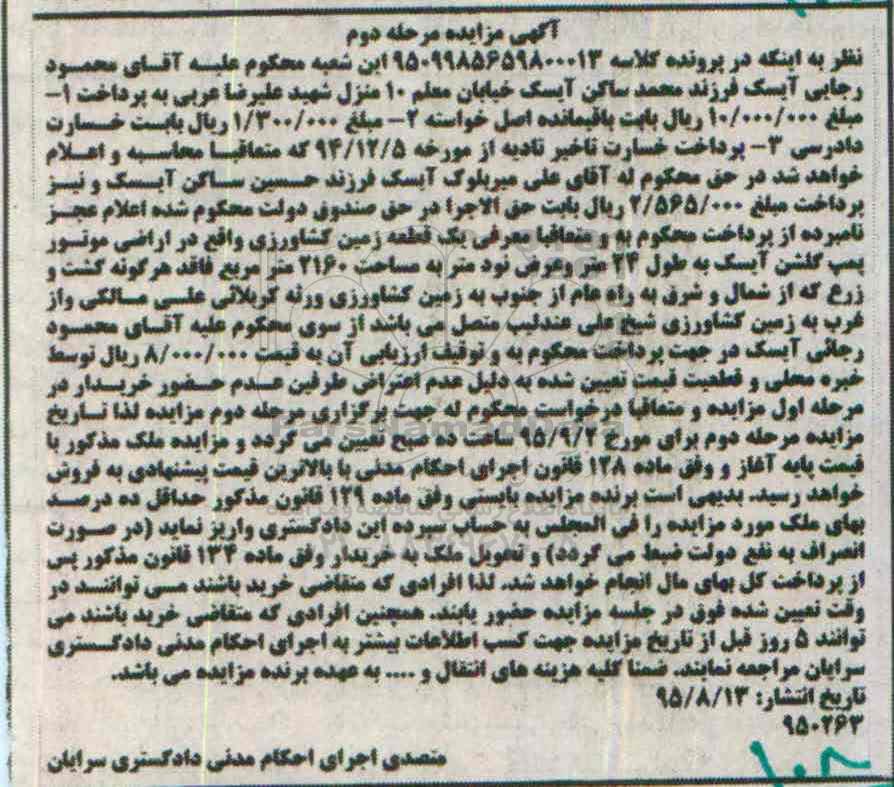 آگهی مزایده مرحله دوم
نظر به اینکه در پرونده کلاسه ۹۵۰۹۹۸۵۶۵۹۸۰۰۰۱۳ این شعبه محکوم علیه آقای محمود
رجایی آیسک فرزند محمد ساکن آیسک خیابان معلم ۱۰ منزل شهید علیرضا عربی به پرداخت ۱-
مبلغ ۱۰/۰۰۰/۰۰۰ ریال بابت باقیمانده اصل خواسته ۲- مبلغ ۱/۳۰۰/۰۰۰ ریال بابت خسارت
دادرسی ۳- پرداخت خسارت تاخیر تادیه از مورخه ۹۴/۱۲/۵ که متعاقبا محاسبه و اعلام
خواهد شد در حق محکوم له آقای علی میربلوک آیسک فرزند حسین ساکن آیسک و نیز
پرداخت مبلغ ۲/۵۶۵/۰۰۰ ریال بابت حق الاجرا در حق صندوق دولت محکوم شده اعلام عجز
نامبرده از پرداخت محکوم به و متعاقبا معرفی یک قطعه زمین کشاورزی واقع در اراضی موتور
پمپ گلشن آیسک به طول ۲۴ متر وعرض نود متر به مساحت ۲۱۶۰ متر مربع فاقد هرگونه کشت و
زرع که از شمال و شرق به راه عام از جنوب به زمین کشاورزی ورثه کربلائی علی مالکی واز
غرب به زمین کشاورزی شیخ علی عندلیب متصل می باشد از سوی محکوم علیه آقای محمود
رجائی آیسک در جهت پرداخت محکوم به و توقیف ارزیابی آن به قیمت ۸/۰۰۰/۰۰۰ ریال توسط
خبره محلی و قطعیت قیمت تعیین شده به دلیل عدم اعتراض طرفین عدم حضور خریدار در
مرحله اول مزایده و متعاقبا درخواست محکوم له جهت برگزاری مرحله دوم مزایده لذا تاریخ
مزایده مرحله دوم برای مورخ ۹۵/۹/۲ ساعت ده صبح تعیین می گردد و مزایده ملک مذکور با
قیمت پایه آغاز و وفق ماده ۱۲۸ قانون اجرای احکام مدنی با بالاترین قیمت پیشنهادی به فروش
خواهد رسید. بدیهی است برنده مزایده بایستی وفق ماده ۱۲۹ قانون مذکور حداقل ده درصد
بهای ملک مورد مزایده را فی المجلس به حساب سپرده این دادگستری واریز نماید (در صورت
انصراف به نفع دولت ضبط می گردد) و تحویل ملک به خریدار وفق ماده ۱۳۴ قانون مذکور پس
از پرداخت کل بهای مال انجام خواهد شد. لذا افرادی که متقاضی خرید باشند می توانند در
وقت تعیین شده فوق در جلسه مزایده حضور یابند. همچنین افرادی که متقاضی خرید باشند می
توانند ۵ روز قبل از تاریخ مزایده جهت کسب اطلاعات بیشتر به اجرای احکام مدنی دادگستری
سرایان مراجعه نمایند. ضمنا کلیه هزینه های انتقال و .... به عهده برنده مزایده می باشد.
تاریخ انتشار: ۹۵/۸/۱۳
۹۵۰۲۶۳
متصدی اجرای احکام مدنی دادگستری سرایان
ParsNamadData
۱۰۸